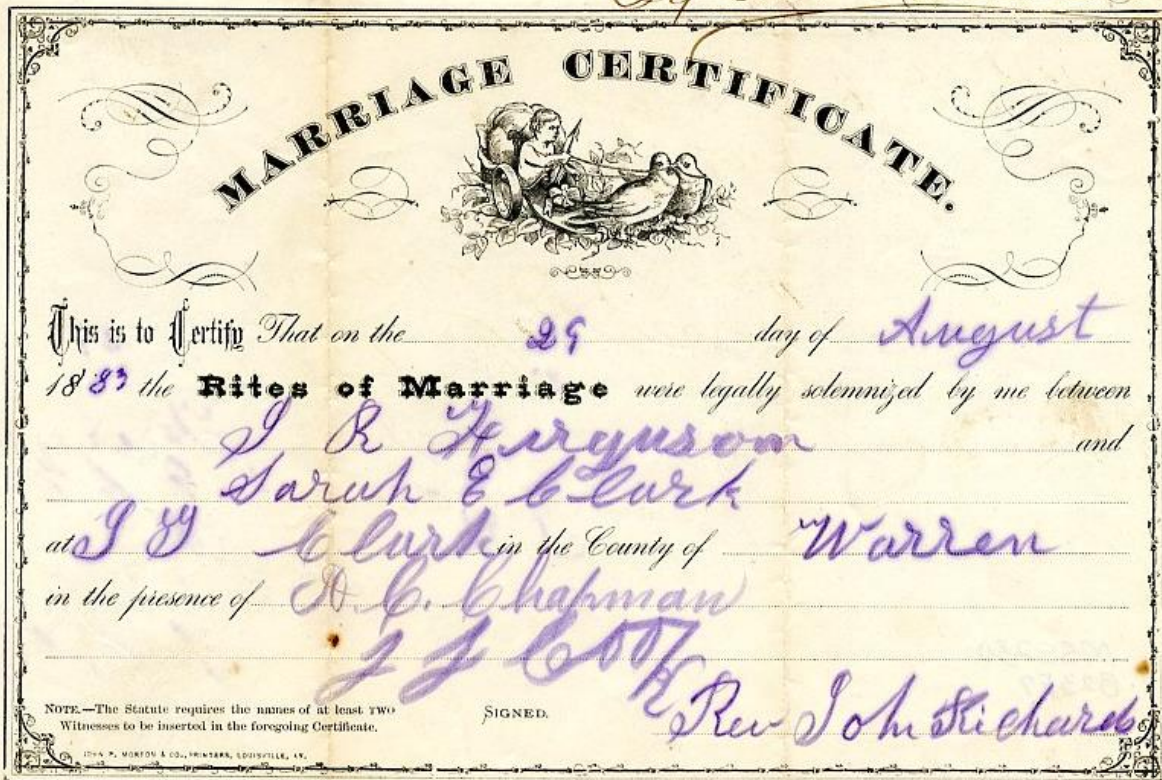 MARRIAGE CERTIFICATE.
This is to Certify That on the 29 day of August
1883 the Rites of Marriage were legally solemnized by me between
J R Furguson and
Sarah E Clark
at J Y Clark in the County of Warren
in the presence of A. C. Chapman
J J Cook
NOTE.—The Statute requires the names of at least TWO
Witnesses to be inserted in the foregoing Certificate.
SIGNED.
Rev John Richards
JOHN P. MORTON & CO., PRINTERS, LOUISVILLE, KY.